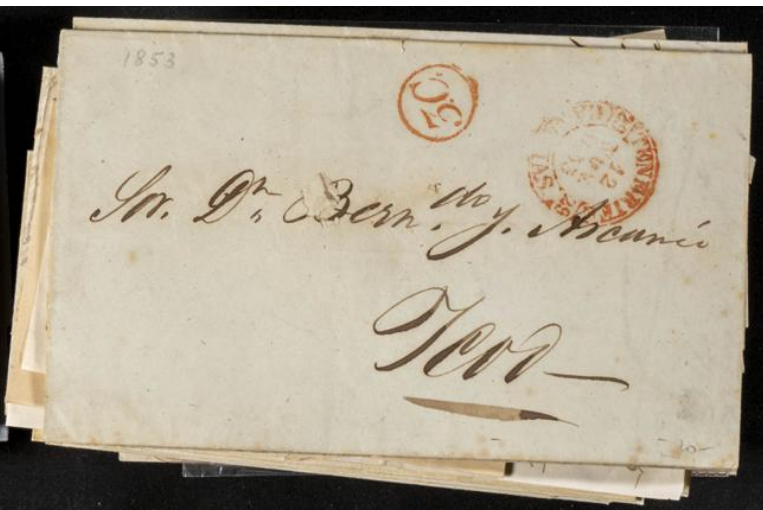 1853
Sor. Dn. Bern.do J. Ascanio
Icod